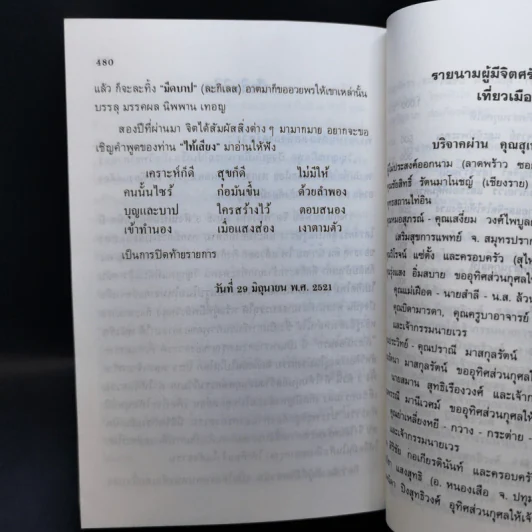 480
แล้ว ก็จะละทิ้ง "มืดบาป" (ละกิเลส) อาตมาก็ขออวยพรให้เขาเหล่านั้น
บรรลุ มรรคผล นิพพาน เทอญ
สองปีที่ผ่านมา จิตได้สัมผัสสิ่งต่าง ๆ มามากมาย อยากจะขอ
เชิญคำพูดของท่าน "ไท้เสียง" มาอ่านให้ฟัง
เคราะห์ก็ดี สุขก็ดี ไม่มีให้
คนนั้นไซร้ ก่อมันขึ้น ด้วยลำพอง
บุญและบาป ใครสร้างไว้ ตอบสนอง
เข้าทำนอง เมื่อแสงส่อง เงาตามตัว
เป็นการปิดท้ายรายการ
วันที่ 29 มิถุนายน พ.ศ. 2521
รายนามผู้มีจิตศรั
เที่ยวเมือ
บริจาคผ่าน คุณสุเ
ไม่ประสงค์ออกนาม (ลาดพร้าว ซอย
ชัยสิทธิ์ รัตนมาโนชญ์ (เชียงราย)
สถานไท่อิน
หมอสุภรณ์ - คุณเสงี่ยม วงศ์ไพบูล
เสริมสุขการแพทย์ จ. สมุทรปรา
วิโรจน์ แซ่ตั้ง และครอบครัว (สุไห
แสง อิ่มสบาย ขออุทิศส่วนกุศลให้
คุณแม่เฝือด - นายสำลี - น.ส. ล้วน
คุณบิดามารดา, คุณครูบาอาจารย์
และเจ้ากรรมนายเวร
วิทย์ - คุณปราณี มาสกูลรัตน์
มาสกูลรัตน์ ขออุทิศส่วนกุศลให้
นายสมาน สุทธิเรืองวงศ์ และเจ้าก
มานีเวคม์ ขออุทิศส่วนกุศลให้
คุณย่าเหลี่ยงหยี - กวาง - กระต่าย -
และเจ้ากรรมนายเวร
ศิริชัย กอเกียรตินันท์ และครอบครั
แสงสุทธิ (อ. หนองเสือ จ. ปทุม
ปิงสุทธิวงศ์ อุทิศส่วนกุศลให้เจ้